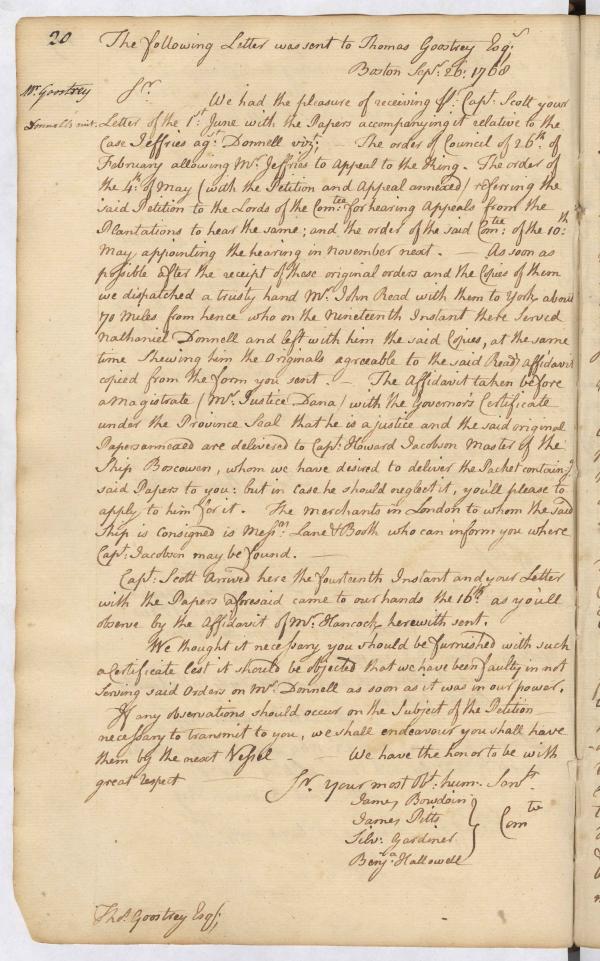 20
The following Letter was sent to Thomas Goostrey Esqr;
Boston Sepr. 26: 1768
Mr. Goostrey
Sr. We had the pleasure of receiving pr: Capt. Scott your
Donnell's suit. Letter of the 1st June with the Papers accompanying it relative to the
Case Jeffries agst. Donnell vizt; — The order of Council of 26th of
February allowing Mr. Jeffries to Appeal to the King. The order of
the 4th of May (with the Petition and Appeal annexed) referring the
said Petition to the Lords of the Comtee: for hearing Appeals from the
Plantations to hear the same; and the order of the said Comtee: of the 10th:
May, appointing the hearing in November next. — As soon as
possible after the receipt of those original orders and the Copies of them
we dispatched a trusty hand Mr. John Read with them to York, about
70 Miles from hence who on the Nineteenth Instant there Served
Nathaniel Donnell and left with him the said Copies, at the same
time Shewing him the Originals agreeable to the said Reads affidavit
copied from the form you sent. — The Affidavit taken before
a Magistrate (Mr. Justice Dana) with the Governor's Certificate
under the Province Seal that he is a justice and the said original
Papers annexed are delivered to Capt: Howard Jacobson Master of the
Ship Boscowen, whom we have desired to deliver the Packet containg
said Papers to you: but in case he should neglect it, you'll please to
apply to him for it. The Merchants in London to whom the said
Ship is consigned is Messrs: Lane & Booth who can inform you where
Capt: Jacobson may be found. —
Capt: Scott arrived here the fourteenth Instant and your Letter
with the Papers aforesaid came to our hands the 16th: as you'll
observe by the Affidavit of Mr. Hancock, herewith sent.
We thought it necessary you should be furnished with such
a Certificate lest it should be objected that we have been faulty in not
Serving said Orders on Mr. Donnell as soon as it was in our power.
If any observations should occur on the Subject of the Petition
necessary to transmit to you, we shall endeavour you shall have
them by the next Vessel — We have the honor to be with
great respect — Sr. your most Obt. hum. Servts.
James Bowdoin
James Pitts
Silvr. Gardiner
Benja. Hallowell
Comtee
Thos. Goostrey Esqr;